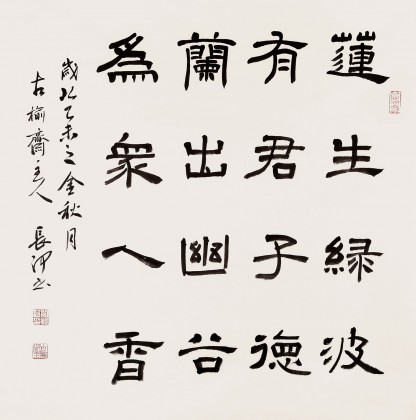 蓮生緑波
有君子德
蘭出幽谷
為衆人香
歲次乙未之金秋月
古榆齋主人長